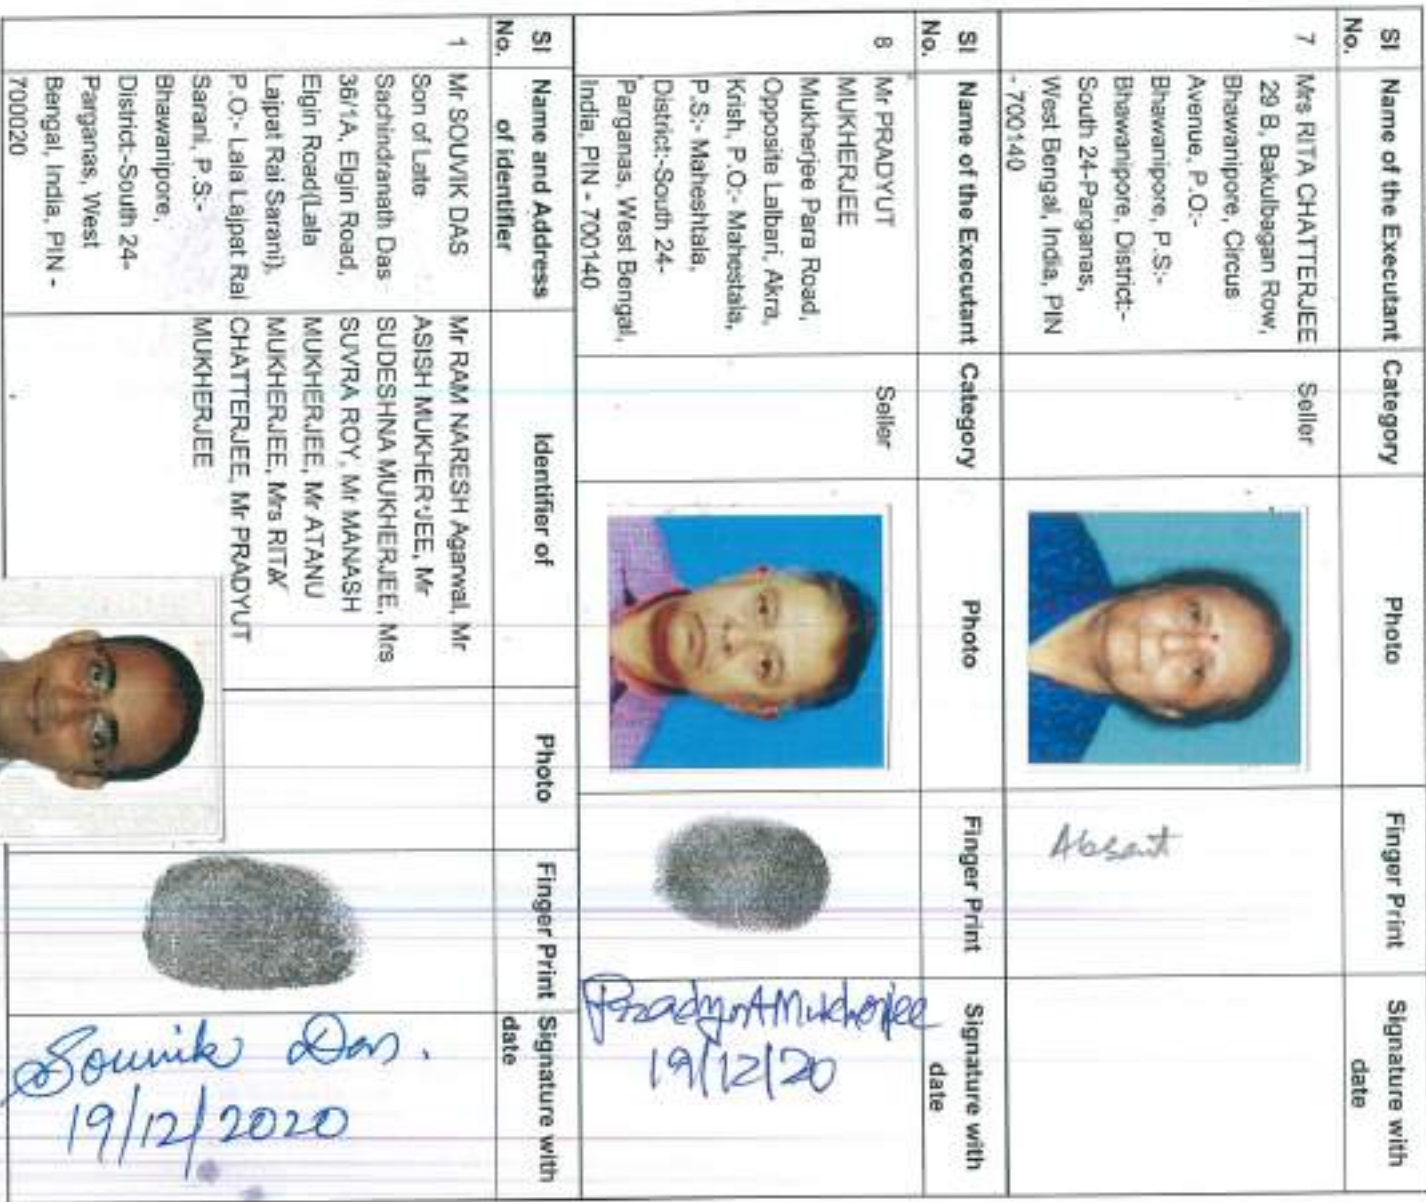 Sl No. Name of the Executant Category Photo Finger Print Signature with date
7 Mrs RITA CHATTERJEE Seller
29 B, Bakulbagan Row,
Bhawanipore, Circus
Avenue, P.O:-
Bhawanipore, P.S:-
Bhawanipore, District:-
South 24-Parganas,
West Bengal, India, PIN
- 700140
Absent
Sl No. Name of the Executant Category Photo Finger Print Signature with date
8 Mr PRADYUT Seller
MUKHERJEE
Mukherjee Para Road,
Opposite Lalbari, Akra,
Krish, P.O:- Mahestala,
P.S:- Maheshtala,
District:-South 24-
Parganas, West Bengal,
India, PIN - 700140
Pradyut Mukherjee
19/12/20
Sl No. Name and Address of identifier Identifier of Photo Finger Print Signature with date
1 Mr SOUVIK DAS
Son of Late
Sachindranath Das
36/1A, Elgin Road,
Elgin Road(Lala
Lajpat Rai Sarani),
P.O:- Lala Lajpat Rai
Sarani, P.S:-
Bhawanipore,
District:-South 24-
Parganas, West
Bengal, India, PIN -
700020
Mr RAM NARESH Agarwal, Mr
ASISH MUKHERJEE, Mr
SUDESHNA MUKHERJEE, Mrs
SUVRA ROY, Mr MANASH
MUKHERJEE, Mr ATANU
MUKHERJEE, Mrs RITA
CHATTERJEE, Mr PRADYUT
MUKHERJEE
Souvik Das.
19/12/2020